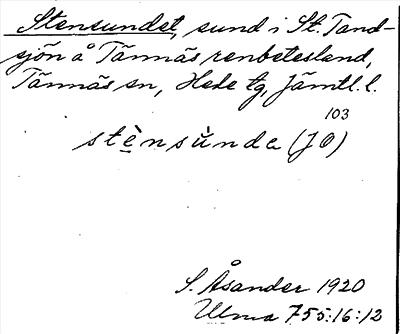 Stensundet, sund i St. Tand-
sjön å Tännäs renbetesland,
Tännäs sn, Hede tg, Jämtl. l.
103
stè̱nsùnda (JO)
S. Åsander 1920
Ulma 755:16:12